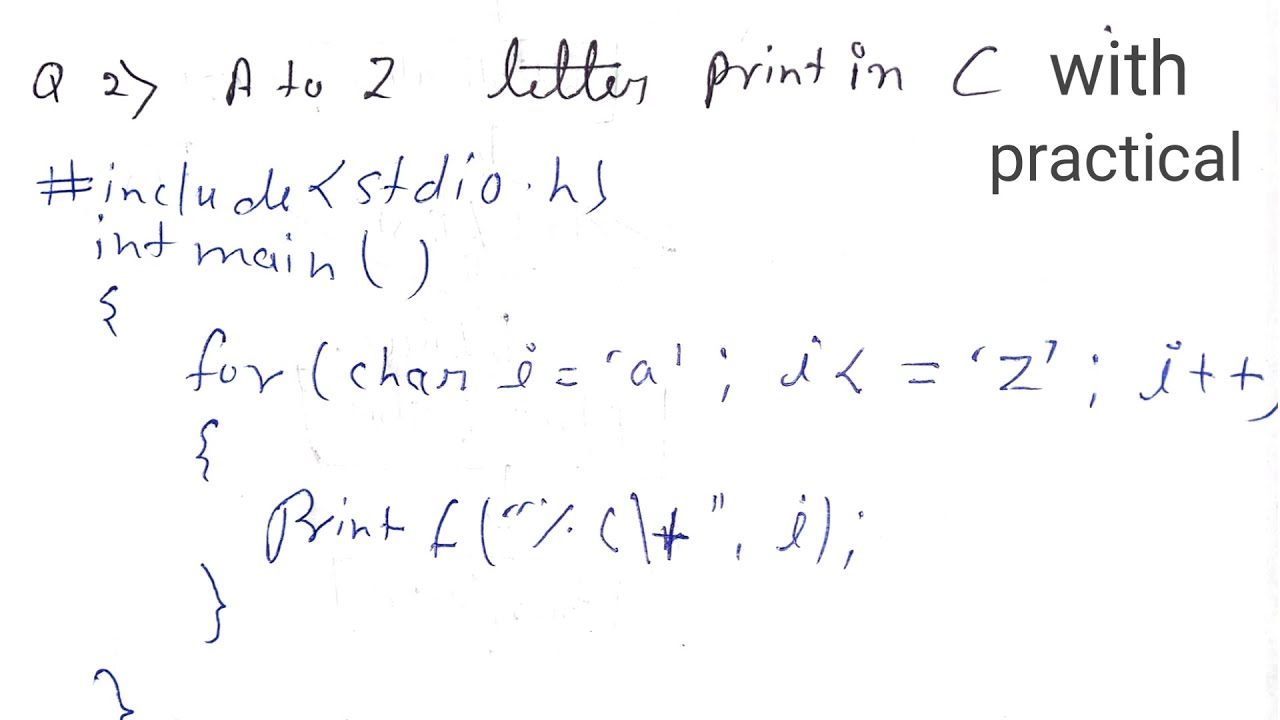 Q 2> A to Z letter print in C with
practical
#include<stdio.h>
int main()
{
for(char i='a'; i<='z'; i++)
{
Printf("%c\t", i);
}
}